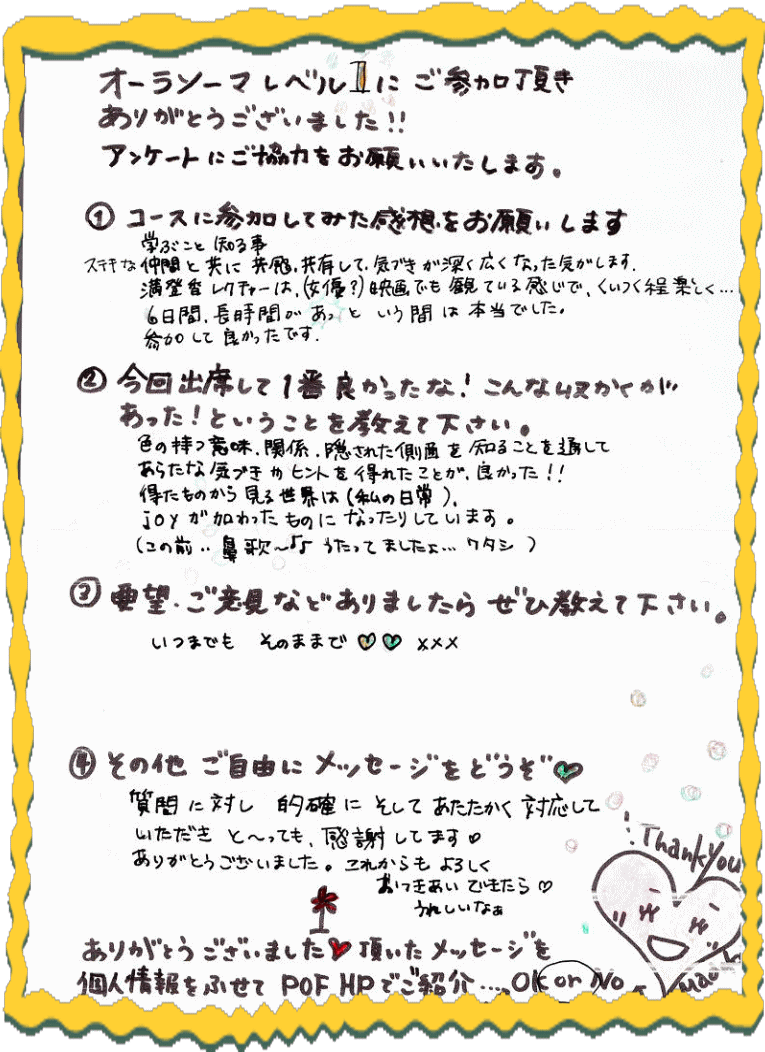 オーラソーマレベルⅡにご参加頂き
ありがとうございました!!
アンケートにご協力をお願いいたします。
① コースに参加してみた感想をお願いします
学ぶこと 知る事
ステキな仲間と共に 共感、共有して、気づきが深く広くなった気がします.
レクチャーは、(女優?)映画でも観ている感じで、くいつく程楽しく…
6日間、長時間があっという間は本当でした。
参加して良かったです.
② 今回出席して1番良かったな!こんな収かくが
あった!ということを教えて下さい。
色の持つ意味、関係、隠された側面を知ることを通して
あらたな気づきやヒントを得れたことが、良かった!!
得たものから見る世界は(私の日常)、
joyが加わったものになったりしています。
(この前‥鼻歌〜♪♪うたってましたよ…ワタシ)
③ 要望・ご意見などありましたらぜひ教えて下さい。
いつまでも そのままで ♡♡ xxx
④ その他 ご自由にメッセージをどうぞ♥
質問に対し 的確に そして あたたかく 対応して
いただき と〜っても、感謝してます♡
ありがとうございました。これからもよろしく
おつきあいできたら♡
うれしいなぁ
Thank You
ありがとうございました♥頂いたメッセージを
個人情報をふせて POF HPでご紹介‥‥ OK or No